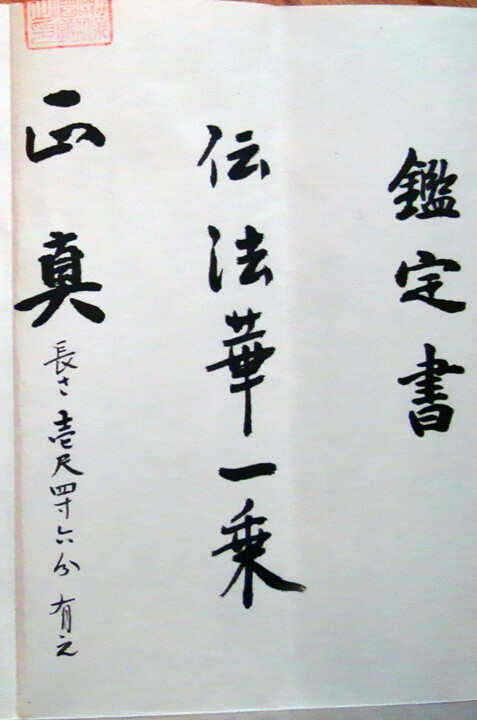 鑑定書
伝法華一乗
正真
長さ壱尺四寸六分有之